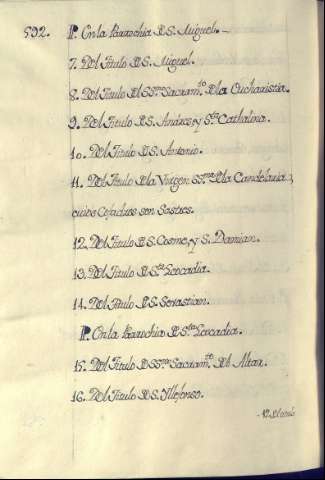 592. P. En la Parrochia de S. Miguel.
7. Del Titulo de S. Miguel.
8. Del Titulo del SSmo. Sacramto. de la Eucharistia.
9. Del Titulo de S. Andres, y Sta. Cathalina.
10. Del Titulo de S. Antonio.
11. Del Titulo de la Virgen SSma. de la Candelaria,
cuios Cofadres son Sastres.
12. Del Titulo de S. Cosme, y S. Damian.
13. Del Titulo de Sta. Leocadia.
14. Del Titulo de S. Sevastian.
P. En la Parrochia de Sta. Leocadia.
15. Del Titulo de SSmo. Sacramto. del Altar.
16. Del Titulo de S. Ildefonso.